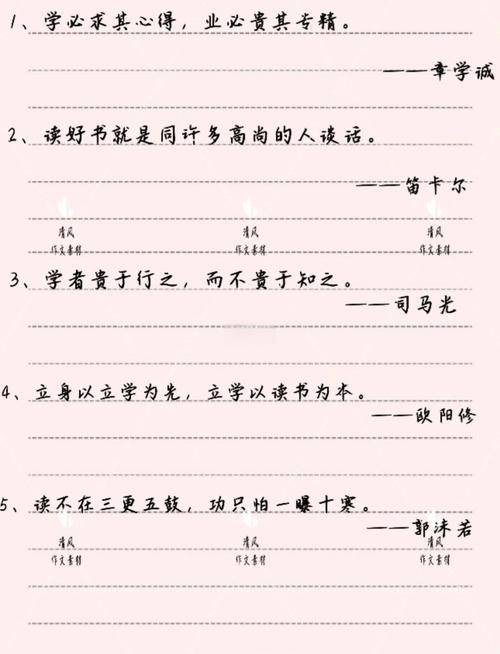 1、学必求其心得，业必贵其专精。
——章学诚
2、读好书就是同许多高尚的人谈话。
——笛卡尔
清风 清风 清风
作文素材 作文素材 作文素材
3、学者贵于行之，而不贵于知之。
——司马光
4、立身以立学为先，立学以读书为本。
——欧阳修
5、读不在三更五鼓，功只怕一曝十寒。
——郭沫若
清风 清风 清风
作文素材 作文素材 作文素材